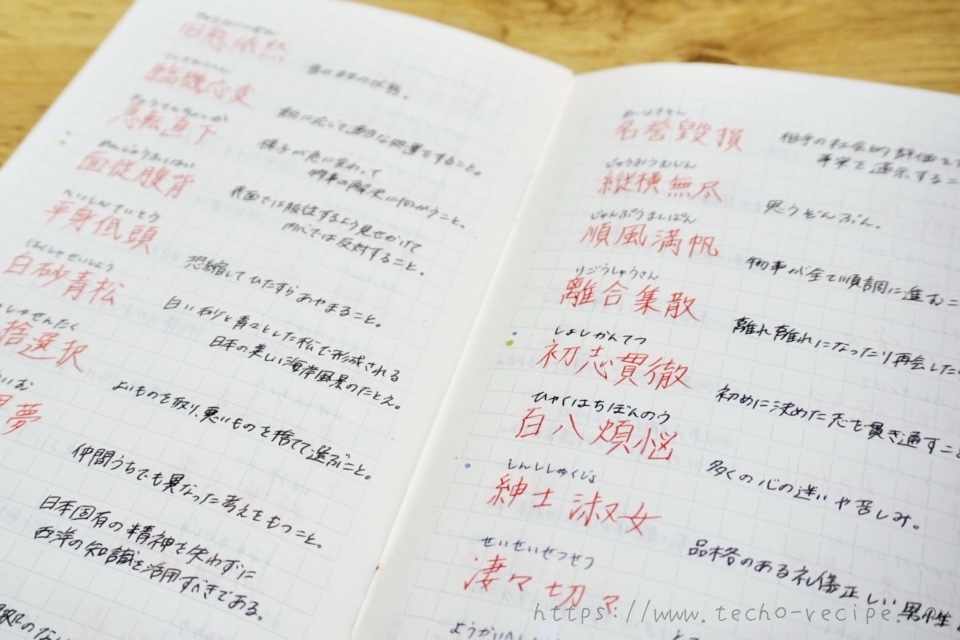 旧態依然
昔のままの状態。
りんきおうへん
臨機応変
機に応じて適当な処置をすること。
きゅうてんちょっか
急転直下
様子が急に変わって
物事の解決に向かうこと。
めんじゅうふくはい
面従腹背
表面では服従するよう見せかけて
内心では反対すること。
へいしんていとう
平身低頭
恐縮してひたすらあやまること。
はくしゃせいしょう
白砂青松
白い砂と青々とした松で形成される
日本の美しい海岸風景のたとえ。
しゃせんたく
捨選択
よいものを取り、悪いものを捨てて選ぶこと。
いむ
夢
仲間うちでも異なった考えをもつこと。
日本固有の精神を失わずに
西洋の知識を活用すべきである。
めいよきそん
名誉毀損
相手の社会的評価を
事実を適示するこ
じゅうおうむじん
縦横無尽
思うぞんぶん。
じゅんぷうまんぱん
順風満帆
物事が全て順調に進むこ
りごうしゅうさん
離合集散
離れ離れになったり再会した
しょしかんてつ
初志貫徹
初めに決めた志を貫き通すこと
ひゃくはちぼんのう
百八煩悩
多くの心の迷いや苦しみ。
しんししゅくじょ
紳士淑女
品格のある礼儀正しい男性
せいせいせつせつ
凄々切々
https://www.techo-recipe.